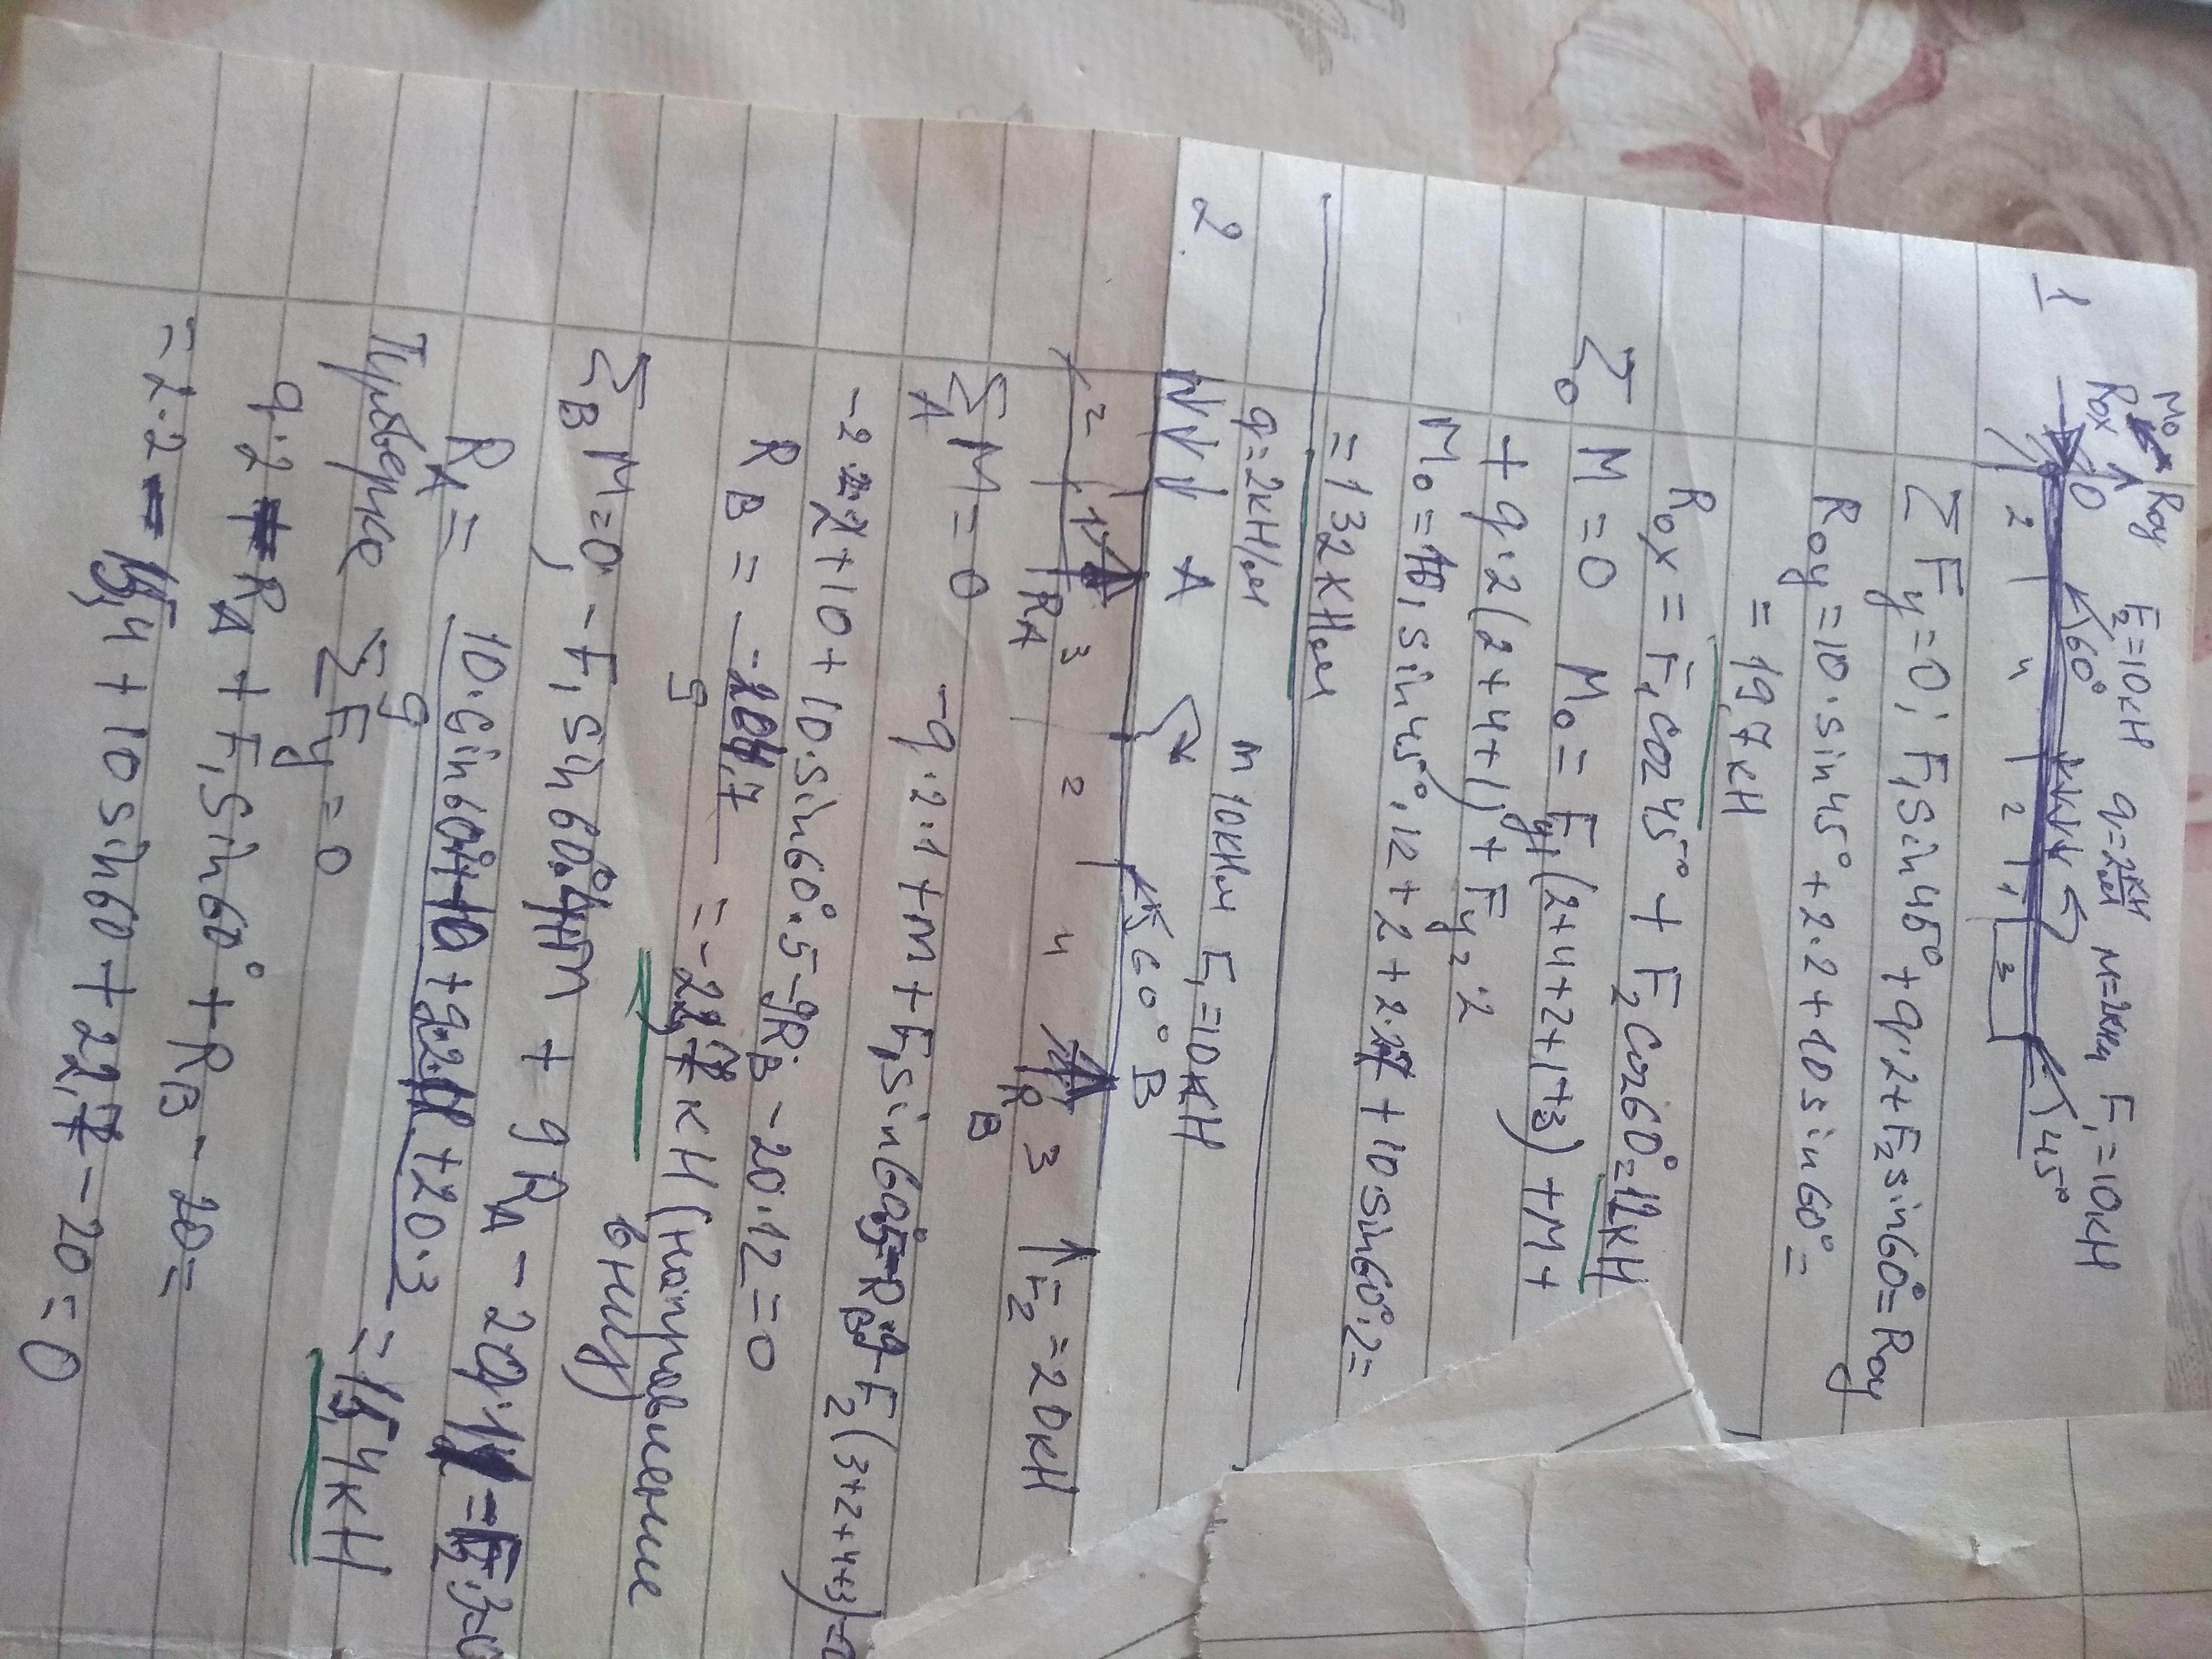 1
M₀ R₀y F₂=10кН q=2кН/м M=2кНм F₁=10кН
R₀x 0 60° 45°
2 4 2 1 3
ΣFy=0; F₁sin45°+q·2+F₂sin60°=R₀y
R₀y=10·sin45°+2·2+10sin60°=
=19,7кН
R₀x=F₁cos45°+F₂cos60°=12кН
Σ₀M=0 M₀=Fy₁(2+4+2+1+3)+M+
+q·2(2+4+1)+Fy₂·2
M₀=10·sin45°·12+2+2·14+10·sin60°·2=
=132кНм
2
q=2кН/м m 10кНм F₁=10кН
A 60° B
2 1 RA 3 2 4 RB 3 F₂=20кН
ΣAM=0 -q·2·1+m+F₁sin60°·5-RB·9-F₂(3+2+4+3)=0
-2·2+10+10·sin60°·5-9RB-20·12=0
RB= = -22,7кН (направление
вниз)
ΣBM=0, -F₁sin60°·4+m+9RA-
RA= =15,4кН
9
Проверка ΣFy=0
q·2 RA+F₁sin60°+RB-20=
=2·2-15,4+10sin60+22,7-20=0